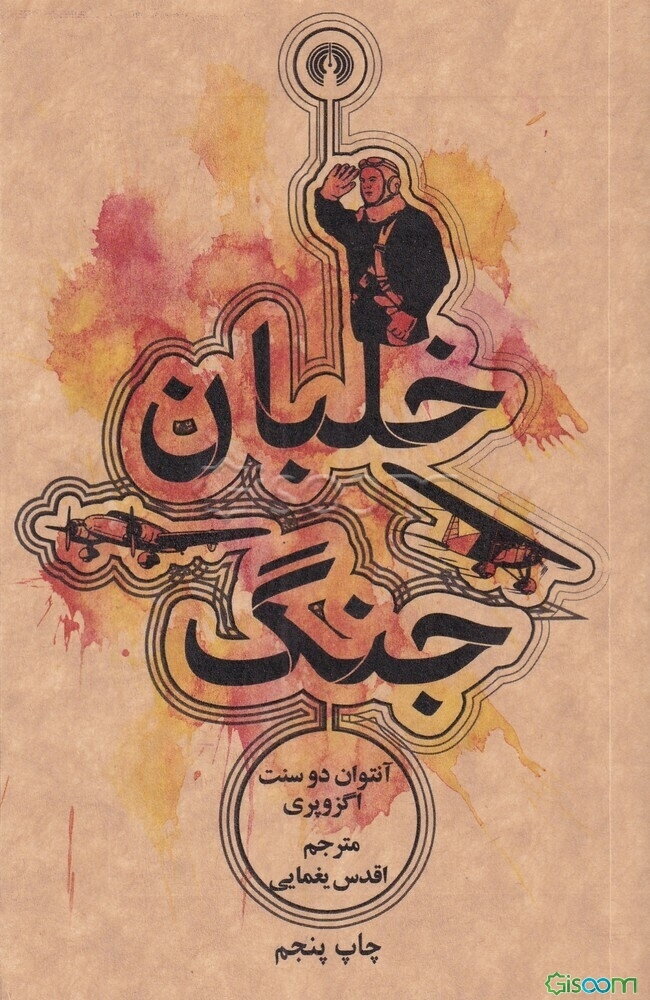 خلبان
جنگ
آنتوان دو سنت
اگزوپری
مترجم
اقدس یغمایی
چاپ پنجم
Gisoom